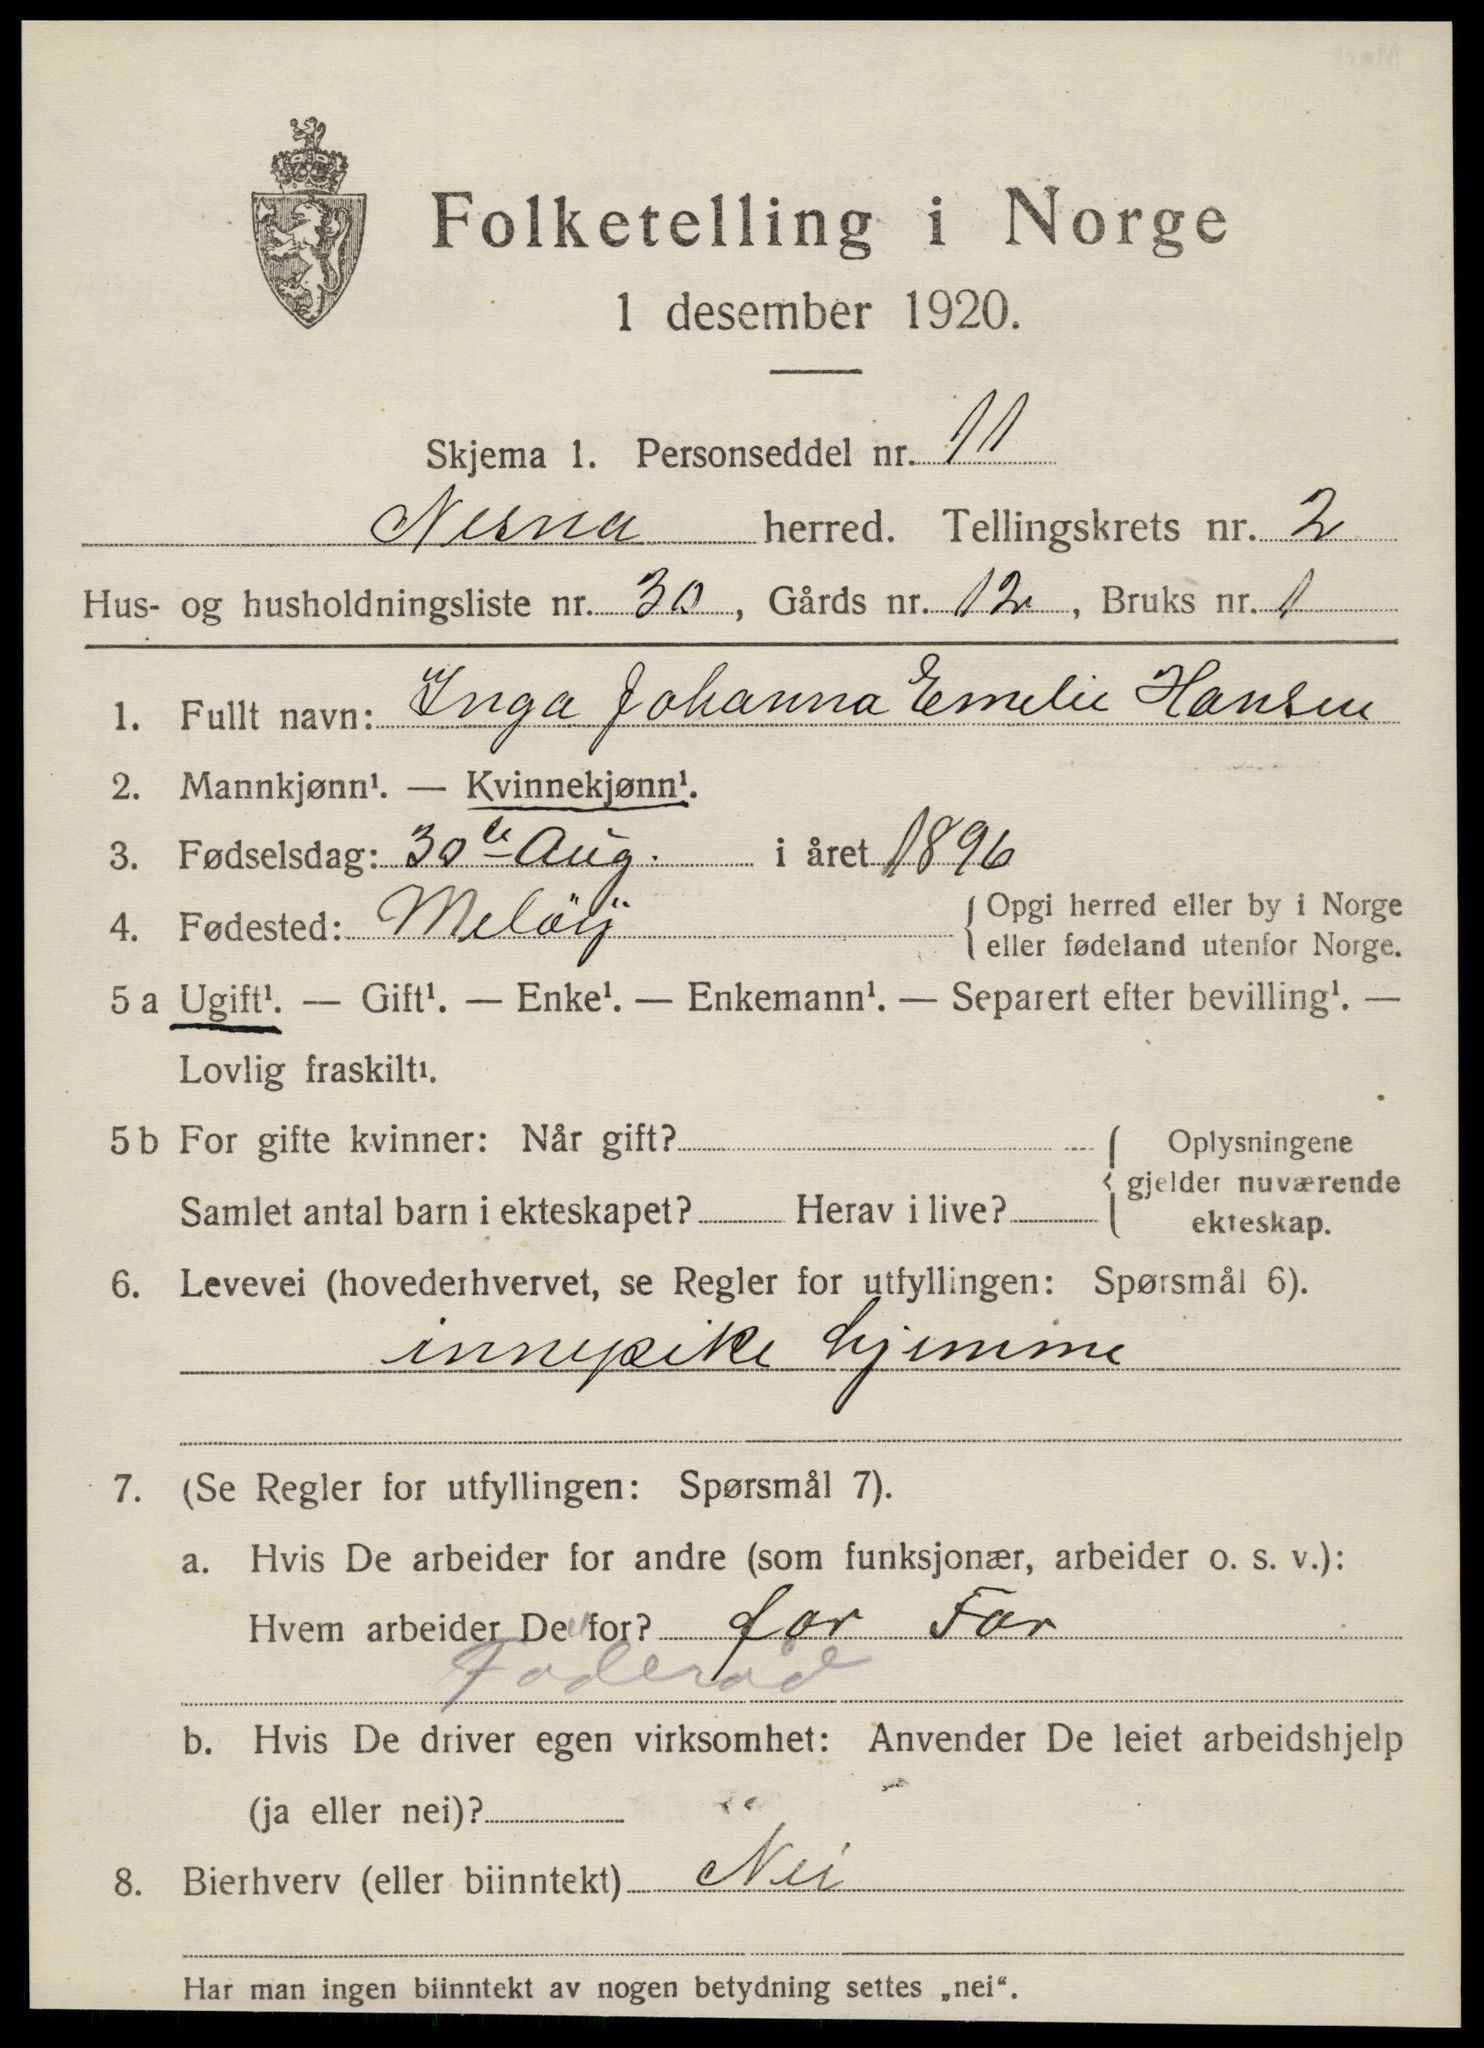 Folketelling i Norge
1 desember 1920.
Skjema 1. Personseddel nr. 11
Nesna herred. Tellingskrets nr. 2
Hus- og husholdningsliste nr. 30, Gårds nr. 12, Bruks nr. 1
1. Fullt navn: Inga Johanna Emelie Hansen
2. Mannkjønn¹. — Kvinnekjønn¹.
3. Fødselsdag: 30te Aug. i året 1896
4. Fødested: Meløÿ { Opgi herred eller by i Norge
eller fødeland utenfor Norge.
5 a Ugift¹. — Gift¹. — Enke¹. — Enkemann¹. — Separert efter bevilling¹. —
Lovlig fraskilt¹.
5 b For gifte kvinner: Når gift? { Oplysningene
gjelder nuværende
Samlet antal barn i ekteskapet? Herav i live? ekteskap.
6. Levevei (hovederhvervet, se Regler for utfyllingen: Spørsmål 6).
innepike hjemme
7. (Se Regler for utfyllingen: Spørsmål 7).
a. Hvis De arbeider for andre (som funksjonær, arbeider o. s. v.):
Hvem arbeider De for? for Far
Foderåd
b. Hvis De driver egen virksomhet: Anvender De leiet arbeidshjelp
(ja eller nei)?
8. Bierhverv (eller biinntekt) Nei
Har man ingen biinntekt av nogen betydning settes „nei“.